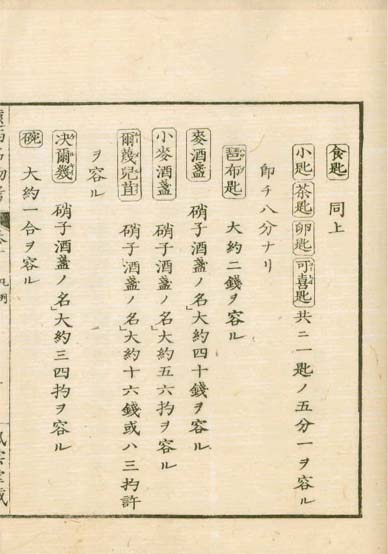 食匙 同上
小匙 茶匙 卵匙 可喜匙 共ニ一匙ノ五分一ヲ容ル
即チ八分ナリ
苔布匙 大約二錢ヲ容ル
麥酒盞 硝子酒盞ノ名大約四十錢ヲ容ル
小麥酒盞 硝子酒盞ノ名大約五六扚ヲ容ル
爾幾兒昔 硝子酒盞ノ名大約十六錢或ハ三扚許
ヲ容ル
决爾幾 硝子酒盞ノ名大約三四扚ヲ容ル
碗 大約一合ヲ容ル